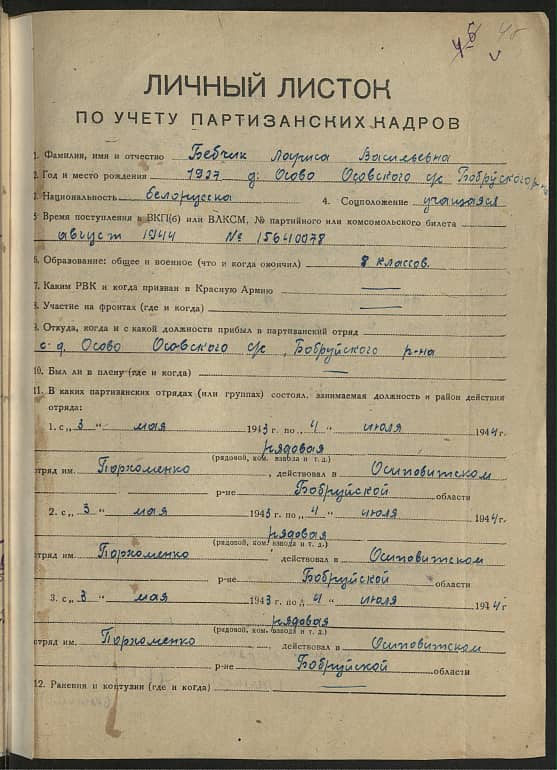 46
ЛИЧНЫЙ ЛИСТОК
ПО УЧЕТУ ПАРТИЗАНСКИХ КАДРОВ
1. Фамилия, имя и отчество Бебчик Лариса Васильевна
2. Год и место рождения 1927 д. Осово Осовского с/с Бобруйского р-на
3. Национальность белорусска 4. Соцположение учащаяся
5 Время поступления в ВКП(б) или ВЛКСМ, № партийного или комсомольского билета
август 1944 № 15640078
6. Образование: общее и военное (что и когда окончил) 8 классов.
7. Каким РВК и когда призван в Красную Армию —
8. Участие на фронтах (где и когда) —
9. Откуда, когда и с какой должности прибыл в партизанский отряд
с д. Осово Осовского с/с, Бобруйского р-на
10. Был ли в плену (где и когда) —
11. В каких партизанских отрядах (или группах) состоял, занимаемая должность и район действия
отряда:
1. с „ 3 " мая 1943 г. по „ 4 " июля 1944 г.
рядовая
(рядовой, ком. взвода и т. д.)
отряд им. Пархоменко, действовал в Осиповитском
р-не Бобруйской области
2. с „ 3 " мая 1943 г. по „ 4 " июля 1944 г.
рядовая
(рядовой, ком. взвода и т. д.)
отряд им. Пархоменко, действовал в Осиповитском
р-не Бобруйской области
3. с „ 3 " мая 1943 г. по „ 4 " июля 1944 г
рядовая
(рядовой, ком. взвода и т. д.)
отряд им. Пархоменко, действовал в Осиповитском
р-не Бобруйской области
12. Ранения и контузии (где и когда) —